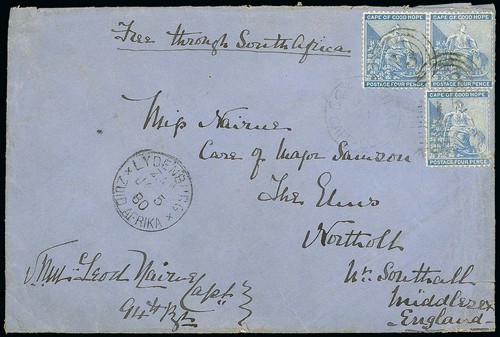 Free through South Africa
CAPE OF GOOD HOPE
POSTAGE FOUR PENCE
CAPE OF GOOD HOPE
POSTAGE FOUR PENCE
CAPE OF GOOD HOPE
POSTAGE FOUR PENCE
Miss Nairne
Care of Major Samson
The Elms
Northolt
Nr. Southall
Middlesex
England
LYDENBURG
5
80
ZUID AFRIKA
Leod Nairne
Capt
94th Rgt